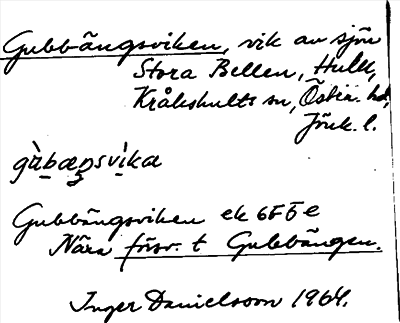 Gubbängsviken, vik av sjön
Stora Bellen, Hult,
Kråkshults sn, Östra hd,
Jönk. l.
gùbæŋsvìka
Gubbängsviken ek 6F 5 e
Nära försv. t Gubbängen.
Inger Danielsson 1964.